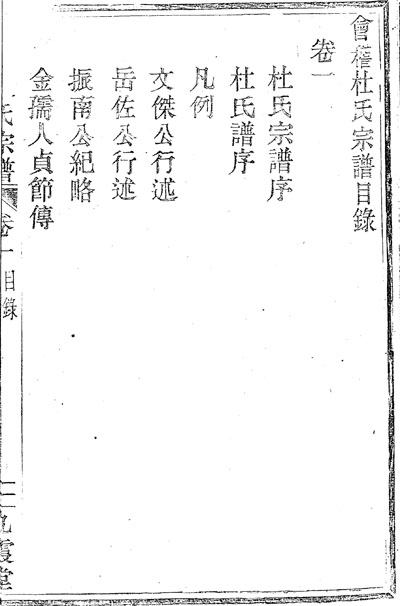 會稽杜氏宗譜目錄
卷一
杜氏宗譜序
杜氏譜序
凡例
文傑公行述
岳佐公行述
振南公紀略
金孺人貞節傳
氏宗譜 卷一 目錄 九霞堂